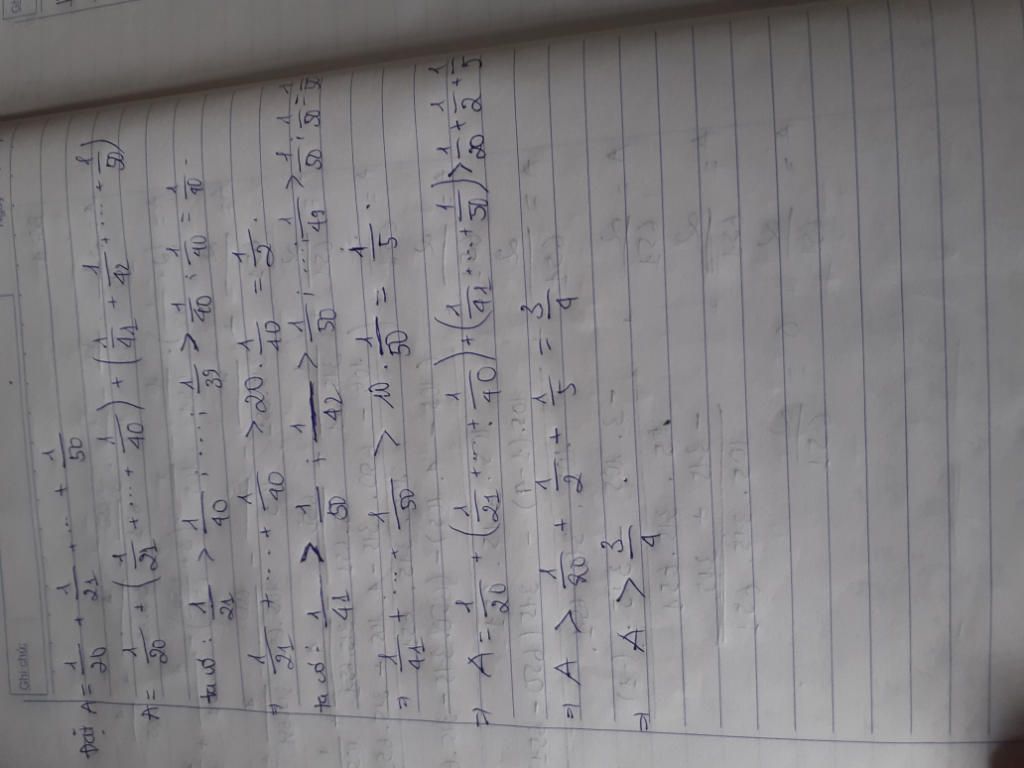 Ghi chú:
Đặt A = 1/20 + 1/21 + ... + 1/50
A = 1/20 + (1/21 + ... + 1/40) + (1/41 + 1/42 + .... + 1/50)
ta có: 1/21 > 1/40 ; .... ; 1/39 > 1/40 ; 1/40 = 1/40.
⇒ 1/21 + ... + 1/40 > 20 . 1/40 = 1/2.
ta có: 1/41 > 1/50 ; 1/42 > 1/50 ; ... ; 1/49 > 1/50 ; 1/50 = 1/50
⇒ 1/41 + .... + 1/50 > 10 . 1/50 = 1/5.
⇒ A = 1/20 + (1/21 + ... + 1/40) + (1/41 + ... + 1/50) > 1/20 + 1/2 + 1/5
⇒ A > 1/20 + 1/2 + 1/5 = 3/4
⇒ A > 3/4